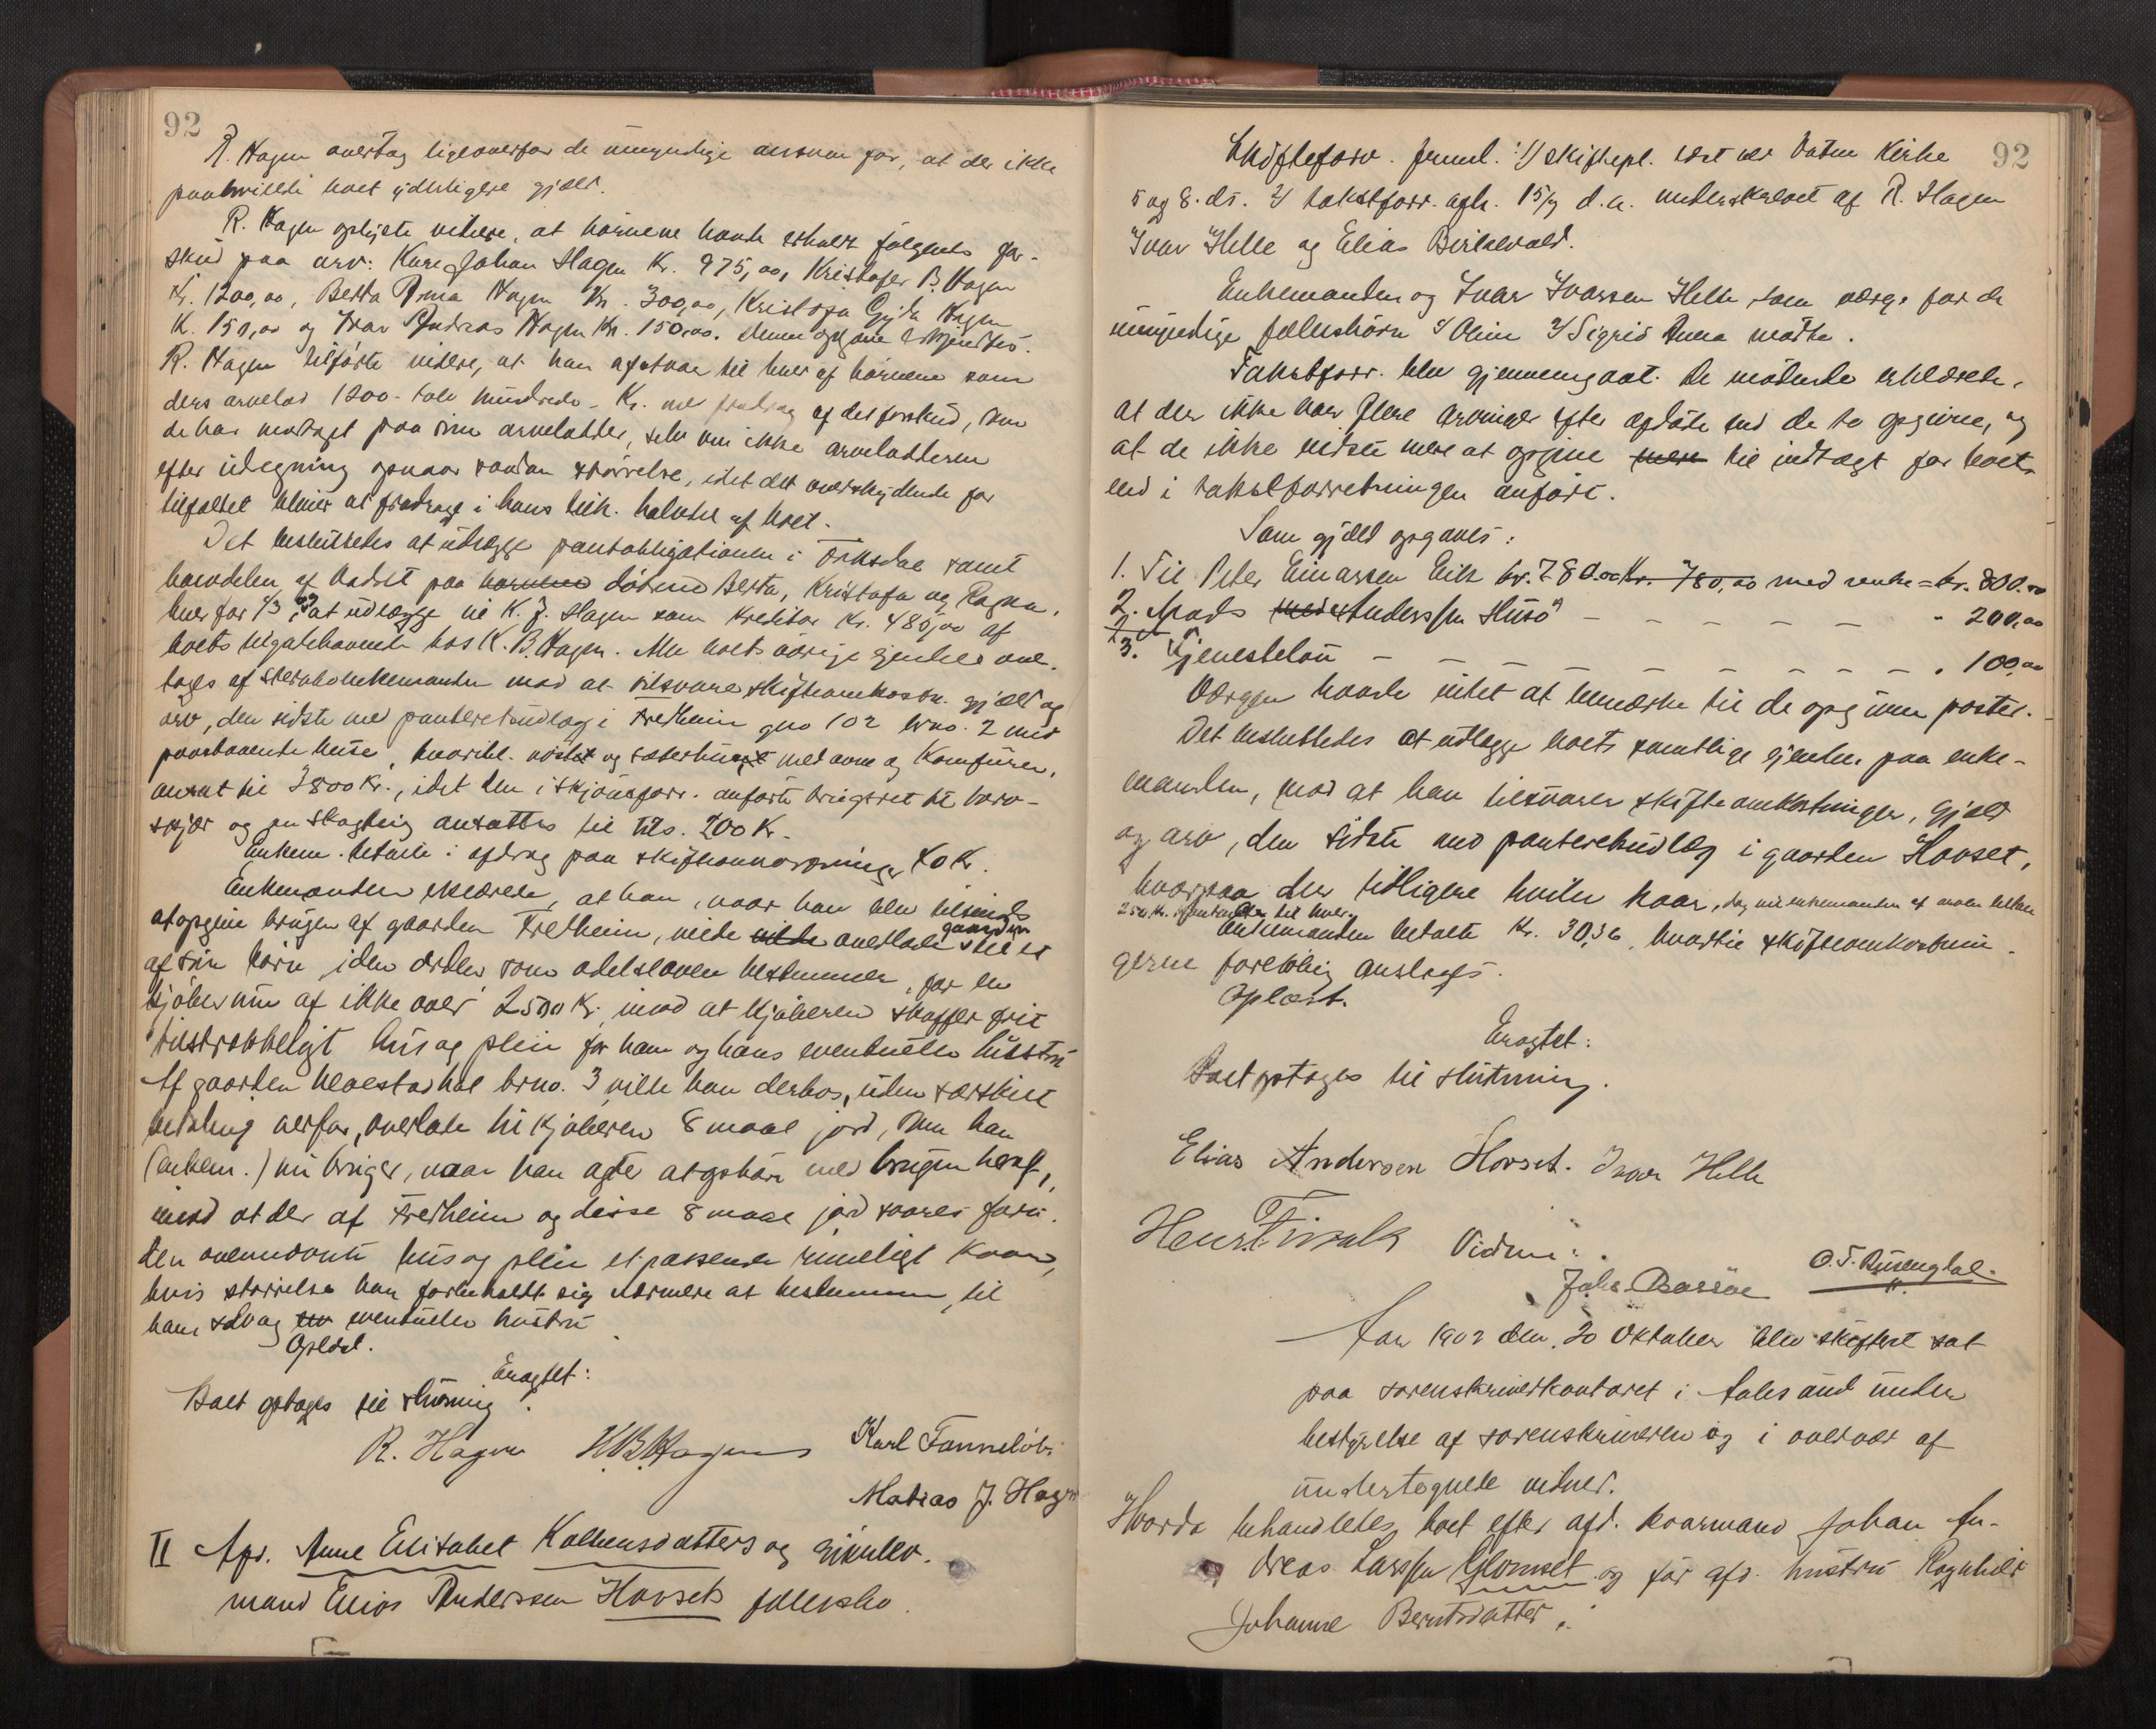 92
R. Hagen overtog ligeoverfor de umyndige ansvar for, at der ikke
paahvilede boet yderligere gjæld.
R. Hagen oplyste videre, at børnene havde erholdt følgende for-
skud paa arv: Karl Johan Hagen Kr. 975,00, Kristofer B. Hagen
Kr. 1200,00, Berta Anna Hagen Kr. 300,00, Kristofa Gyda Hagen
K. 150,00 og Ivar Andreas Hagen Kr. 150,00. Denne opgave erkjendtes.
R. Hagen tilførte videre, at han afstaar til hver af børnene som
deres arvelod 1200 - tolv hundrede - Kr. med fradrag af det forskud, som
de har modtaget paa sine arvelodder, selv om ikke arvelodderne
efter udregning opnaar saadan størrelse, idet det overskydende for
tilfældet bliver at fradrage i hans tilk. halvdel af boet.
Det besluttedes at udlægge pantobligationen i Ørksdal samt
havedelen af Vadset paa børnene døtrene Berta, Kristofa og Ragna,
hver for 1/3 og at udlægge til K. J. Hagen som kreditor Kr. 485,00 af
boets tilgodehavende hos K. B. Hagen. Alle boets øvrige eiendele over-
tages af sterboenkemanden mod at tilsvare skifteomkostn. gjæld og
arv, den sidste med panteretudlæg i Fretheim gno 102 brno. 2 med
paastaaende huse, hvoribl. nøstet og sæterhuset med ovne og Komfurer,
ansat til 3800 Kr., idet den i skjønsforr. anførte brugsret til
skjær og en skogteig ansattes til tils. 200 Kr.
Enkem. betalte i afdrag paa skifteomkostninger 40 Kr.
Enkemanden erklærede, at han, naar han blev tilsinds
at opgive brugen af gaarden Fretheim, vilde vilde overlade gaarden til et
af sine børn, i den orden som odelsloven bestemmer, for en
kjøbesum af ikke over 2500 Kr., imod at kjøberen skaffer frit
tilstrækkeligt hus og pleie for ham og hans eventuelle hustru
Af gaarden brno. 3 vilde han derhos, uden særskilt
betaling derfor, overlade til kjøberen 8 maal jord, som han
(enkem.) nu bruger, naar han agter at ophøre med brugen heraf,
imod at der af Fretheim og disse 8 maal jord svares foru-
den ovennævnte hus og pleie et passende rimeligt Kaar,
hvis størrelse han forbeholdt sig nærmere at bestemme, til
ham selv og eventuelle hustru
Oplæst.
Eragtet:
Boet optages til slutning.
R. Hagen K. B. Hagen Karl
Matias J. Hagen
II Afd. Anne Elisabet Kolbensdatters og gjenlev.
mand Elias Anderssen Hovsets fællesbo.
92
Skifteforv. freml. 1) skiftepl. læst ved Vatne Kirke
5 og 8. ds. 2) takstforr. afh. 15/9 d.a. underskrevet af R. Hagen
Ivar Helle og Elias
Enkemanden og Ivar Ivarsen Helle som værge for de
umyndige fællesbørn 1) Oline 2) Sigrid Anna mødte.
Takstforr. blev gjennemgaaet. De mødende erklærede,
at der ikke var flere arvinger efter afdøde end de to opgivne, og
at de ikke vidste mere at opgive mere til indtægt for boet
end i takstforretningen anført.
Som gjæld opgaves:
1. Til Peter Einarssen Eik kr. 780.00 Kr. 780,00 med rente = kr. 800.00
2. Mads Anderssen Husø - - - - - - 200,00
3. Tjenesteløn - - - - - - - - - 100,00
Værgen havde intet at bemærke til de opgivne poster.
Det besluttedes at udlægge boets samtlige eiendele paa enke-
manden, mod at han tilsvarer skifteomkostninger, gjæld
og arv, den sidste med panteretudlæg i gaarden Hovset,
hvorpaa der tidligere hviler kaar, dog vil enkemanden af arven
250 Kr. til hver.
Enkemanden betalte Kr. 30,36, hvortil skifteomkostnin-
gerne foreløbig ansloges.
Oplæst.
Eragtet:
Boet optages til slutning.
Elias Andersen Hovset. Ivar Helle
Henr. Finsalk Vidner:
Johs Bassøe O. T. Rusengdal.
Aar 1902 den 20 Oktober blev skifteret sat
paa sorenskriverkontoret i Aalesund under
bestyrelse af sorenskriveren og i overvær af
undertegnede vidner.
Hvorda behandledes boet efter afd. kaarmand Johan An-
dreas Larssen Glomset og før afd. hustru Ragnhild
Johanne Berntsdatter.